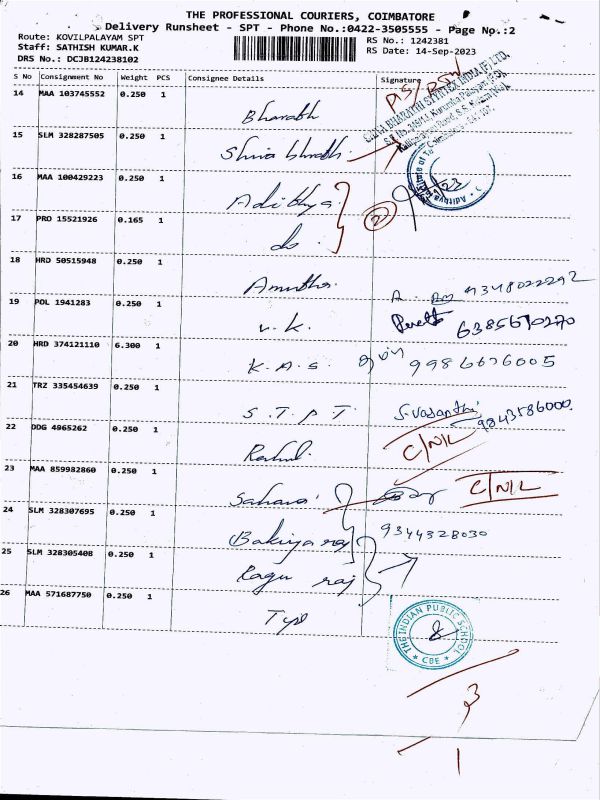 THE PROFESSIONAL COURIERS, COIMBATORE
Delivery Runsheet - SPT - Phone No.:0422-3505555 - Page No.:2
Route: KOVILPALAYAM SPT
RS No.: 1242381
Staff: SATHISH KUMAR.K
RS Date: 14-Sep-2023
DRS No.: DCJB124238102
S No Consignment No Weight PCS Consignee Details Signature
14 MAA 103745552 0.250 1 Bharath
15 SLM 328287505 0.250 1 Shiva bharath
16 MAA 100429223 0.250 1 Adithya
17 PRO 15521926 0.165 1 do. 2
18 HRD 50515948 0.250 1 Amutha.
19 POL 1941283 0.250 1 v.k. 6385610270
20 HRD 374121110 6.300 1 K.A.S. 9986676005
21 TRZ 335454639 0.250 1 S.T.P.T. S.Vasanthi
9843586000.
22 DDG 4965262 0.250 1 Rahul. C/N/L
23 MAA 859982860 0.250 1 C/N/L
24 SLM 328307695 0.250 1 Bakiya raj 9344328030
25 SLM 328305408 0.250 1 Ragu raj
26 MAA 571687750 0.250 1 Tips
THE INDIAN PUBLIC SCHOOL
* CBE *
8
3
1